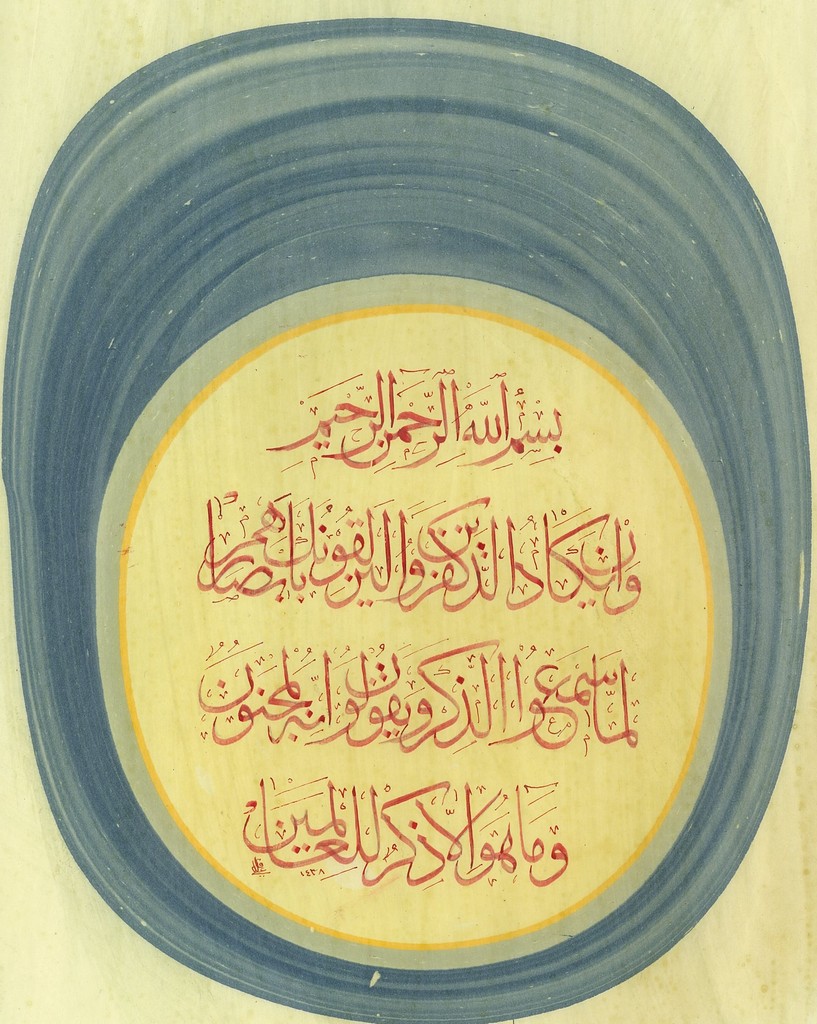 بِسْمِ اللهِ الرَّحْمنِ الرَّحِيمِ
وَإِنْ يَكَادُ الَّذِينَ كَفَرُوا لَيُزْلِقُونَكَ بِأَبْصَارِهِمْ
لَمَّا سَمِعُوا الذِّكْرَ وَيَقُولُونَ إِنَّهُ لَمَجْنُونٌ
وَمَا هُوَ إِلَّا ذِكْرٌ لِلْعَالَمِينَ
١٤٣٨